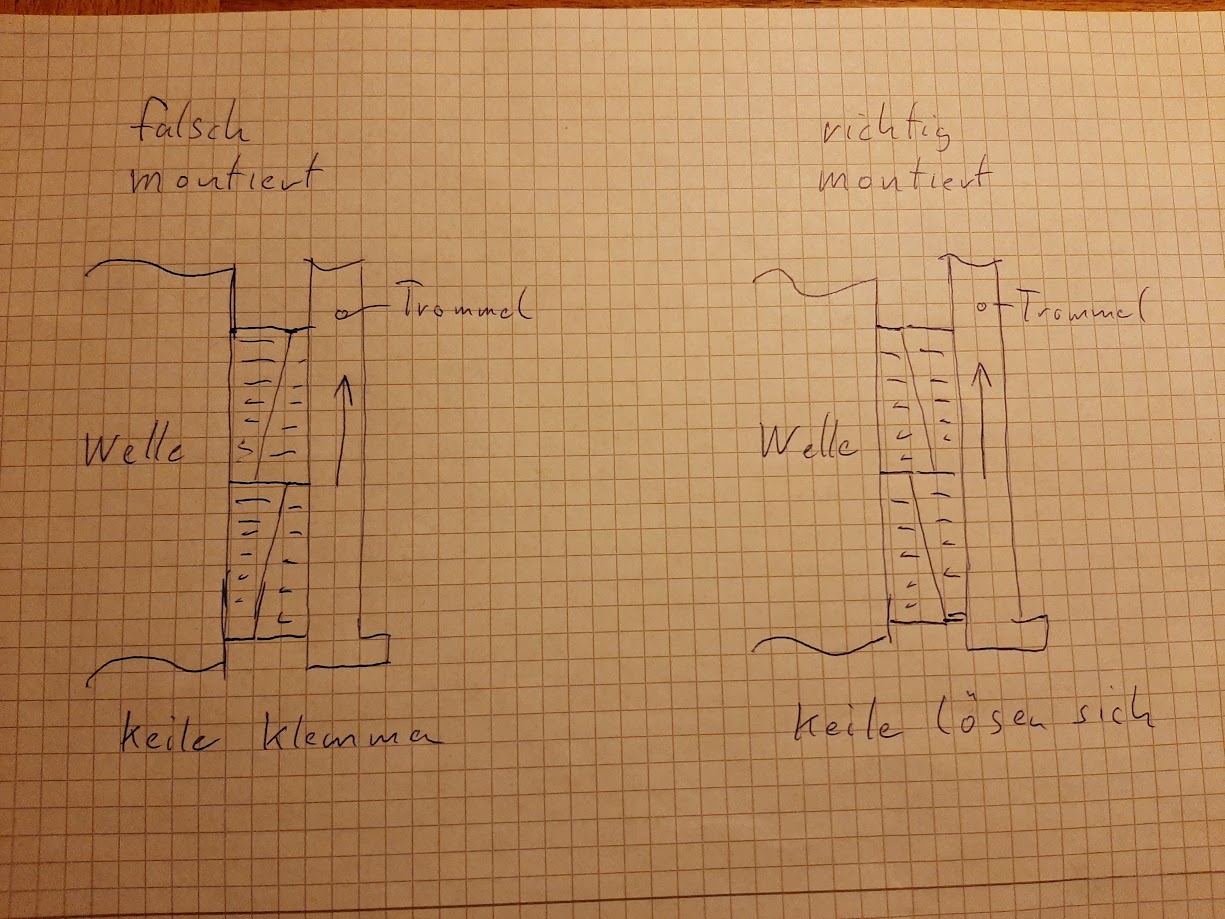 falsch
montiert
richtig
montiert
Trommel
Trommel
Welle
Welle
Keile klemmen
Keile lösen sich